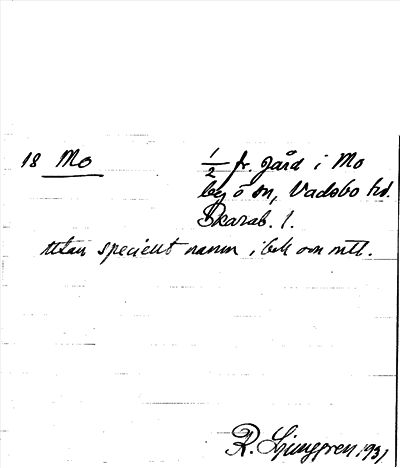 18 Mo
1/2 fr. gård i Mo
by o sn, Vadsbo hd.
Skarab. l.
Utan speciellt namn i bok om mtl.
R. Ljunggren 1931